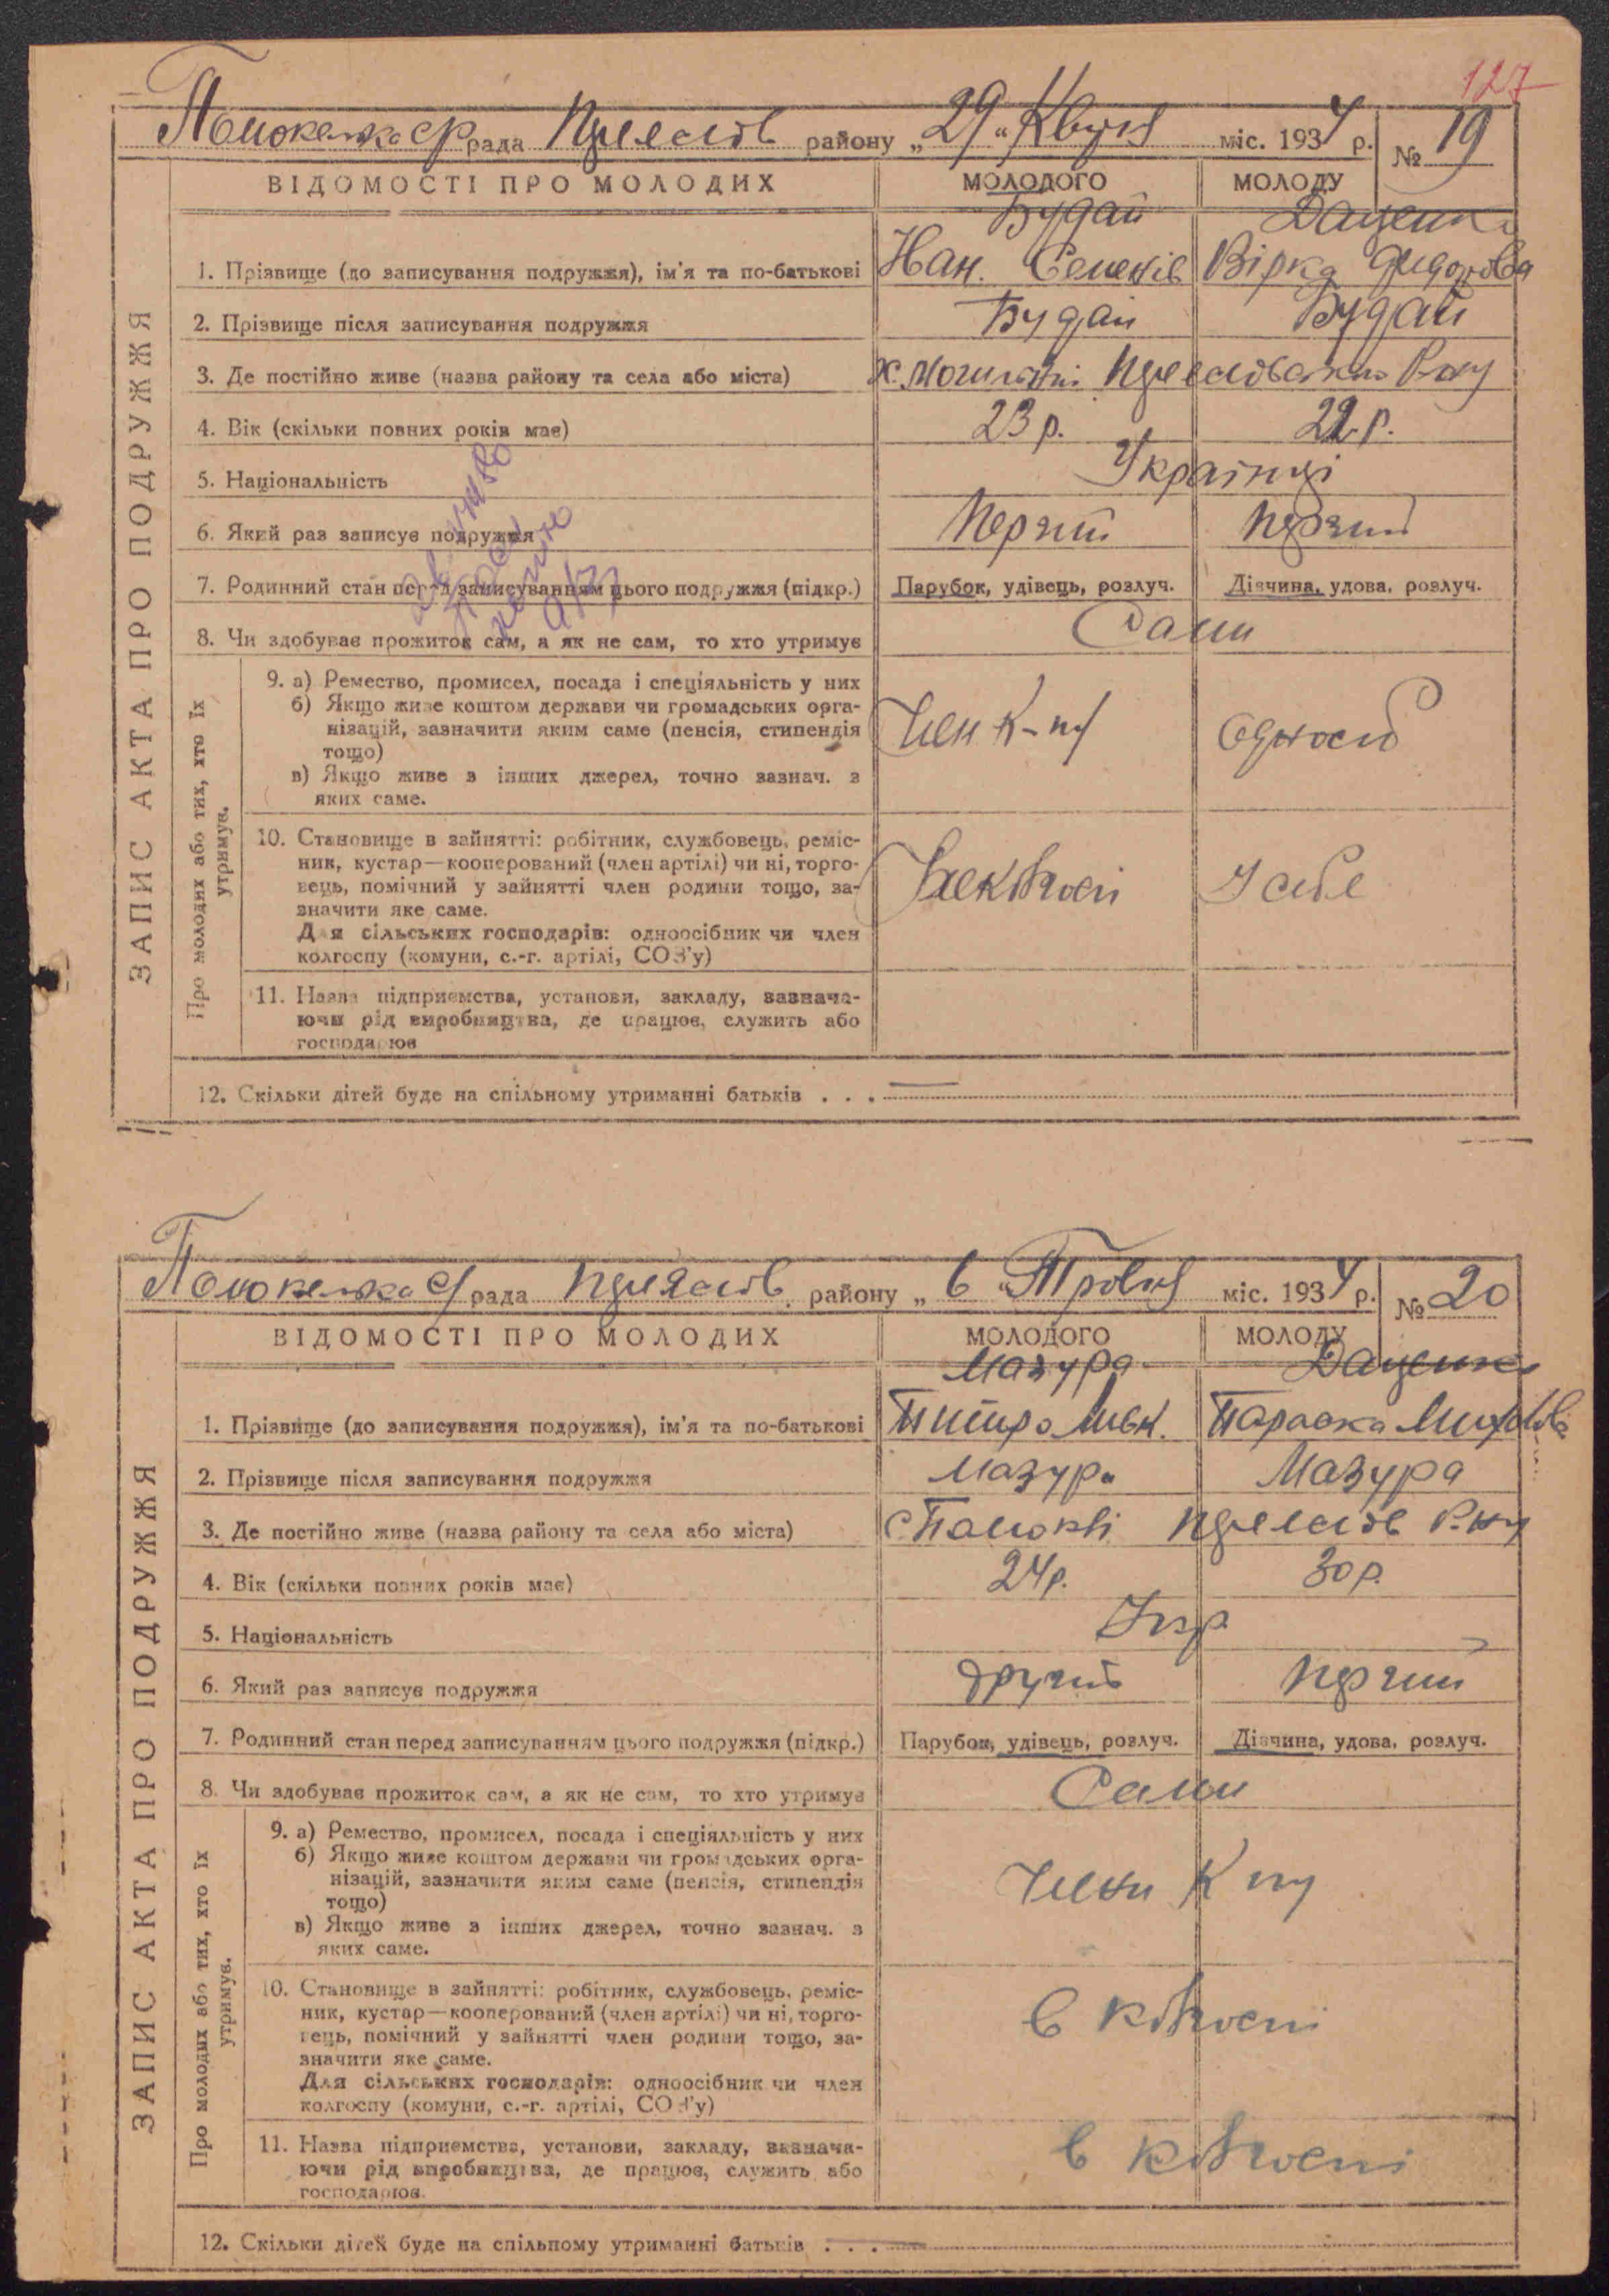 127
рада района „ 29 " Квітня міс. 1934 р. № 19
ВІДОМОСТІ ПРО МОЛОДИХ МОЛОДОГО МОЛОДУ
Будай Даценко
1. Прізвище (до записування подружжя), ім'я та по-батькові Нан. Семенів Вірка Федорова
2. Прізвище після записування подружжя Будай Будай
3. Де постійно живе (назва району та села або міста)
4. Вік (скільки повних років має) 23 р. 22 р.
5. Національність Українці
6. Який раз записує подружжя Перший Перший
7. Родинний стан перед записуванням цього подружжя (підкр.) Парубок, удівець, розлуч. Дівчина, удова, розлуч.
8. Чи здобуває прожиток сам, а як не сам, то хто утримує Сами
ЗАПИС АКТА ПРО ПОДРУЖЖЯ
Про молодих або тих, хто їх утримує.
9. а) Ремество, промисел, посада і спеціяльність у них
б) Якщо живе коштом держави чи громадських орга-
нізацій, зазначити яким саме (пенсія, стипендія
тощо)
в) Якщо живе з інших джерел, точно зазнач. з
яких саме.
Член К-пу Одноосіб
10. Становище в зайнятті: робітник, службовець, реміс-
ник, кустар—кооперований (член артілі) чи ні, торго-
вець, помічний у зайнятті член родини тощо, за-
значити яке саме.
Для сільських господарів: одноосібник чи член
колгоспу (комуни, с.-г. артілі, СОЗ'у)
У себе
11. Назва підприємства, установи, закладу, зазнача-
ючи рід виробництва, де працює, служить або
господарює
12. Скільки дітей буде на спільному утриманні батьків . . .
рада району „ 6 " Травня міс. 1934 р. № 20
ВІДОМОСТІ ПРО МОЛОДИХ МОЛОДОГО МОЛОДУ
Мазура Даценко
1. Прізвище (до записування подружжя), ім'я та по-батькові Параска
2. Прізвище після записування подружжя Мазура Мазура
3. Де постійно живе (назва району та села або міста)
4. Вік (скільки повних років має) 24 р. 30 р.
5. Національність Укр
6. Який раз записує подружжя другий Перший
7. Родинний стан перед записуванням цього подружжя (підкр.) Парубок, удівець, розлуч. Дівчина, удова, розлуч.
8. Чи здобуває прожиток сам, а як не сам, то хто утримує Сами
ЗАПИС АКТА ПРО ПОДРУЖЖЯ
Про молодих або тих, хто їх утримує.
9. а) Ремество, промисел, посада і спеціяльність у них
б) Якщо живе коштом держави чи громадських орга-
нізацій, зазначити яким саме (пенсія, стипендія
тощо)
в) Якщо живе з інших джерел, точно зазнач. з
яких саме.
Члени К пу
10. Становище в зайнятті: робітник, службовець, реміс-
ник, кустар—кооперований (член артілі) чи ні, торго-
вець, помічний у зайнятті член родини тощо, за-
значити яке саме.
Для сільських господарів: одноосібник чи член
колгоспу (комуни, с.-г. артілі, СОЗ'у)
в колгоспі
11. Назва підприємства, установи, закладу, зазнача-
ючи рід виробництва, де працює, служить або
господарює.
в колгоспі
12. Скільки дітей буде на спільному утриманні батьків . . .